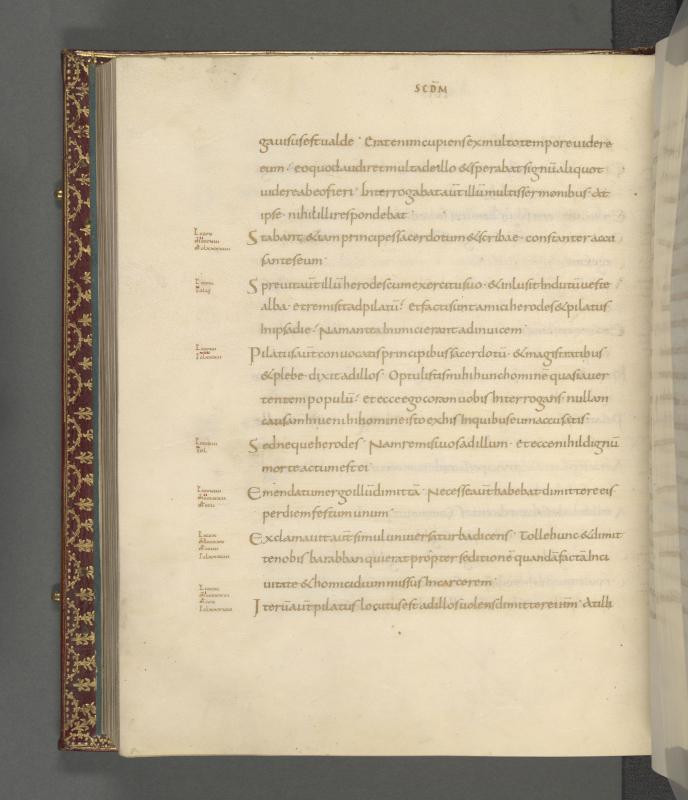 SCDM
gauisusest ualde · Erat enim cupiens ex multo tempore uidere
eum · eo quod audiret multa de illo & sperabat signū aliquot
uidere ab eo fieri · Interrogabat aut̄ illū multis sermonibus · At
ipse · nihil illi respondebat
Stabant & iam principes sacerdotum & scribae · constanter accu
santes eum ·
Spreuit aut̄ illū herodes cum exercitu suo · & inlusit Indutū ueste
alba · et remisit ad pilatū · et facti sunt amici herodes & pilatus
In ipsa die · Nam antea Inimici erant ad inuicem ·
Pilatus aut̄ conuocatis principibus sacerdotū · & magistratibus
& plebe · dixit ad illos · Optulistis mihi hunc hominē quasi auer
tentem populū · et ecce ego coram uobis Interrogans · nullam
causam Inueni In homine isto ex his In quibus eum accusatis ·
Sed neque herodes · Nam remisi uos ad illum · et ecce nihil dignū
morte actum est ei
Emendatum ergo illū dimittā · Necesse aut̄ habebat dimittere eis
per diem festum unum ·
Exclamauit aut̄ simul uniuersa turba dicens · Tolle hunc & dimit
te nobis barabban qui erat propter seditionē quandā factā In ci
uitate & homicidium missus In carcerem ·
Iterū aut̄ pilatus locutus est ad illos uolens dimittere ihm · At illi